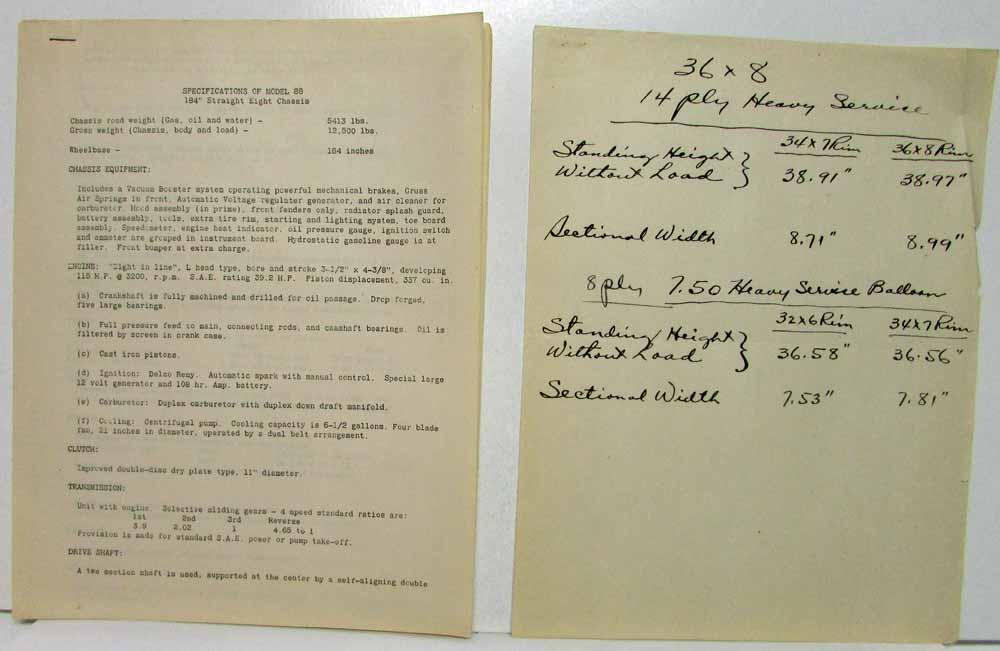 SPECIFICATIONS OF MODEL 88
184" Straight Eight Chassis
Chassis road weight (Gas, oil and water) - 5413 lbs.
Gross weight (Chassis, body and load) - 12,500 lbs.
Wheelbase - 184 inches
CHASSIS EQUIPMENT:
Includes a Vacuum Booster system operating powerful mechanical brakes, Gruss
Air Springs in front, Automatic Voltage regulator generator, and air cleaner for
carburetor. Hood assembly (in prime), front fenders only, radiator splash guard,
battery assembly, tools, extra tire rim, starting and lighting system, toe board
assembly. Speedometer, engine heat indicator, oil pressure gauge, ignition switch
and ammeter are grouped in instrument board. Hydrostatic gasoline gauge is at
filler. Front bumper at extra charge.
ENGINE: "Eight in line", L head type, bore and stroke 3-1/2" x 4-3/8", developing
115 H.P. @ 3200, r.p.m. S.A.E. rating 39.2 H.P. Piston displacement, 337 cu. in.
(a) Crankshaft is fully machined and drilled for oil passage. Drop forged,
five large bearings.
(b) Full pressure feed to main, connecting rods, and camshaft bearings. Oil is
filtered by screen in crank case.
(c) Cast iron pistons.
(d) Ignition: Delco Remy. Automatic spark with manual control. Special large
12 volt generator and 108 hr. Amp. battery.
(e) Carburetor: Duplex carburetor with duplex down draft manifold.
(f) Cooling: Centrifugal pump. Cooling capacity is 6-1/2 gallons. Four blade
fan, 21 inches in diameter, operated by a dual belt arrangement.
CLUTCH:
Improved double-disc dry plate type, 11" diameter.
TRANSMISSION:
Unit with engine. Selective sliding gears - 4 speed standard ratios are:
1st 2nd 3rd Reverse
3.9 2.02 1 4.65 to 1
Provision is made for standard S.A.E. power or pump take-off.
DRIVE SHAFT:
A two section shaft is used, supported at the center by a self-aligning double
36 x 8
14 ply Heavy Service
34x7 Rim 36x8 Rim
Standing Height
Without Load } 38.91" 38.97"
Sectional Width 8.71" 8.99"
8 ply 7.50 Heavy Service Balloon
32x6 Rim 34x7 Rim
Standing Height
Without Load } 36.58" 36.56"
Sectional Width 7.53" 7.81"